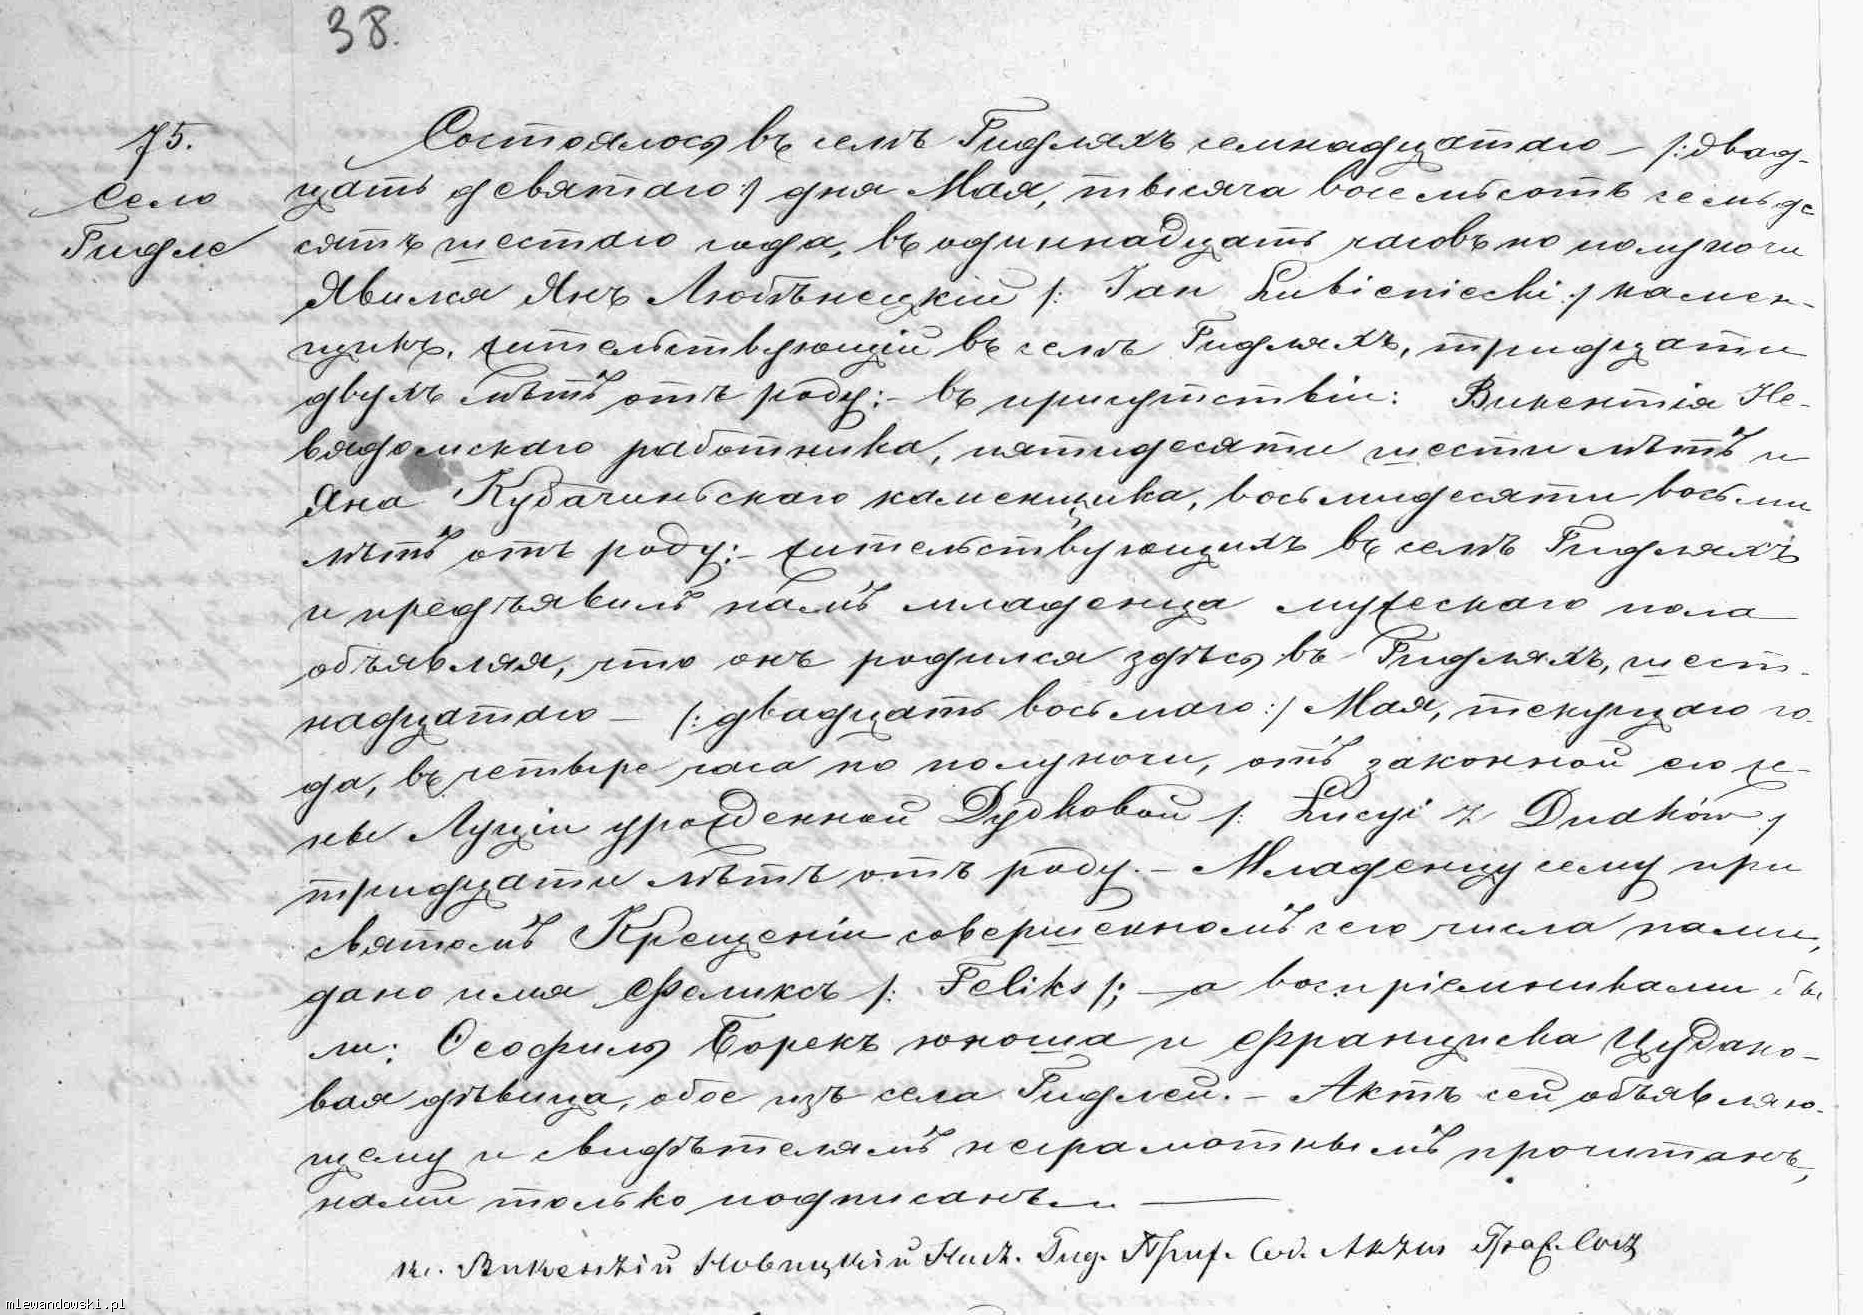 38.
75.
Село
Гидле
Состоялось въ селѣ Гидляхъ семнадцатаго – /:двад-
цать девятаго:/ дня Мая, тысяча восемьсотъ семьде
сятъ шестаго года, въ одиннадцать часовъ по полуночи
Явился Янъ Любѣнецкій /: Jan Lubieniecki :/ камен-
щикъ, жительствующій въ селѣ Гидляхъ, тридцати
двухъ лѣтъ отъ роду:- въ присутствіи: Викентія Не-
вядомскаго работника, пятидесяти шести лѣтъ и
Яна Кубачиньскаго каменщика, восьмидесяти восьми
лѣтъ отъ роду:- жительствующихъ въ селѣ Гидляхъ
и предъявилъ намъ младенца мужескаго пола
объявляя, что онъ родился здѣсь въ Гидляхъ, шест-
надцатаго – /: двадцать восьмаго :/ Мая, текущаго го-
да, въ четыре часа по полуночи, отъ законной его же-
ны Луціи урожденной Дудковой /: Lucyi z Dudków :/
тридцати лѣтъ отъ роду.- Младенцу сему при
святомъ Крещеніи совершенномъ сего числа нами,
дано имя Феликсъ /: Feliks /; – а воспріемниками бы
ли: Ѳеофиль Борекъ юноша и Францишка Цудако-
вая дѣвица, обое изъ села Гидлей.- Актъ сей объявляю-
щему и свидѣтелямъ неграмотнымъ прочитанъ,
нами только подписанъ.
Кс. Викентій Новицкій Наст. Гид. Приф. Сод. Акты Граж. Сост
mlewandowski.pl